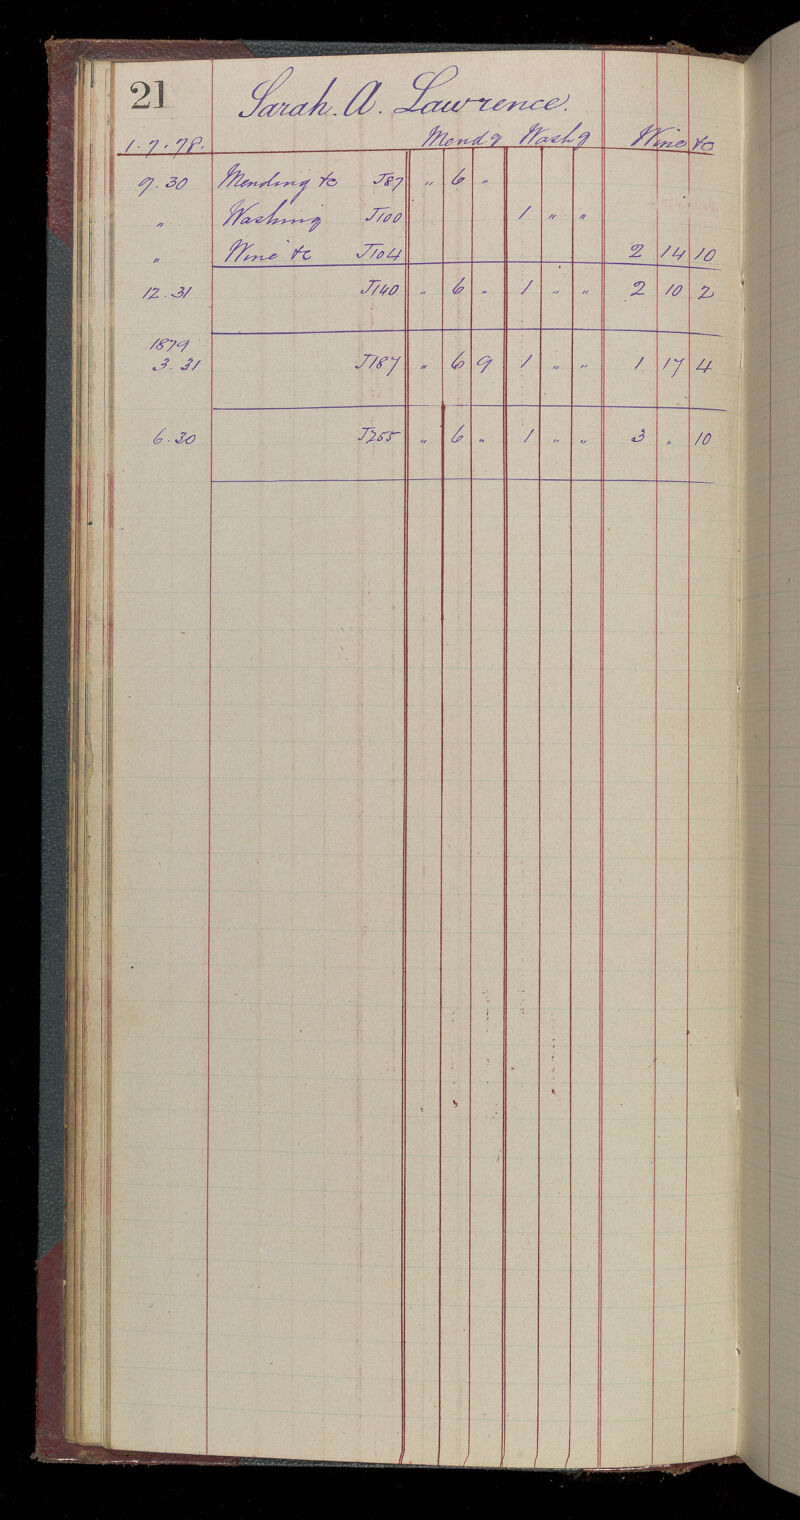 21 Sarah. A. Lawrence.
1.7.78. Mendg Washg Wine &c
9.30 Mending &c J87 " 6 "
" Washing J100 1 " "
" Wine &c J104 2 14 10
12.31 J140 " 6 " 1 " " 2 10 2
1879
3.31 J187 " 6 9 1 " " 1 17 4
6.30 J255 " 6 " 1 " " 3 " 10